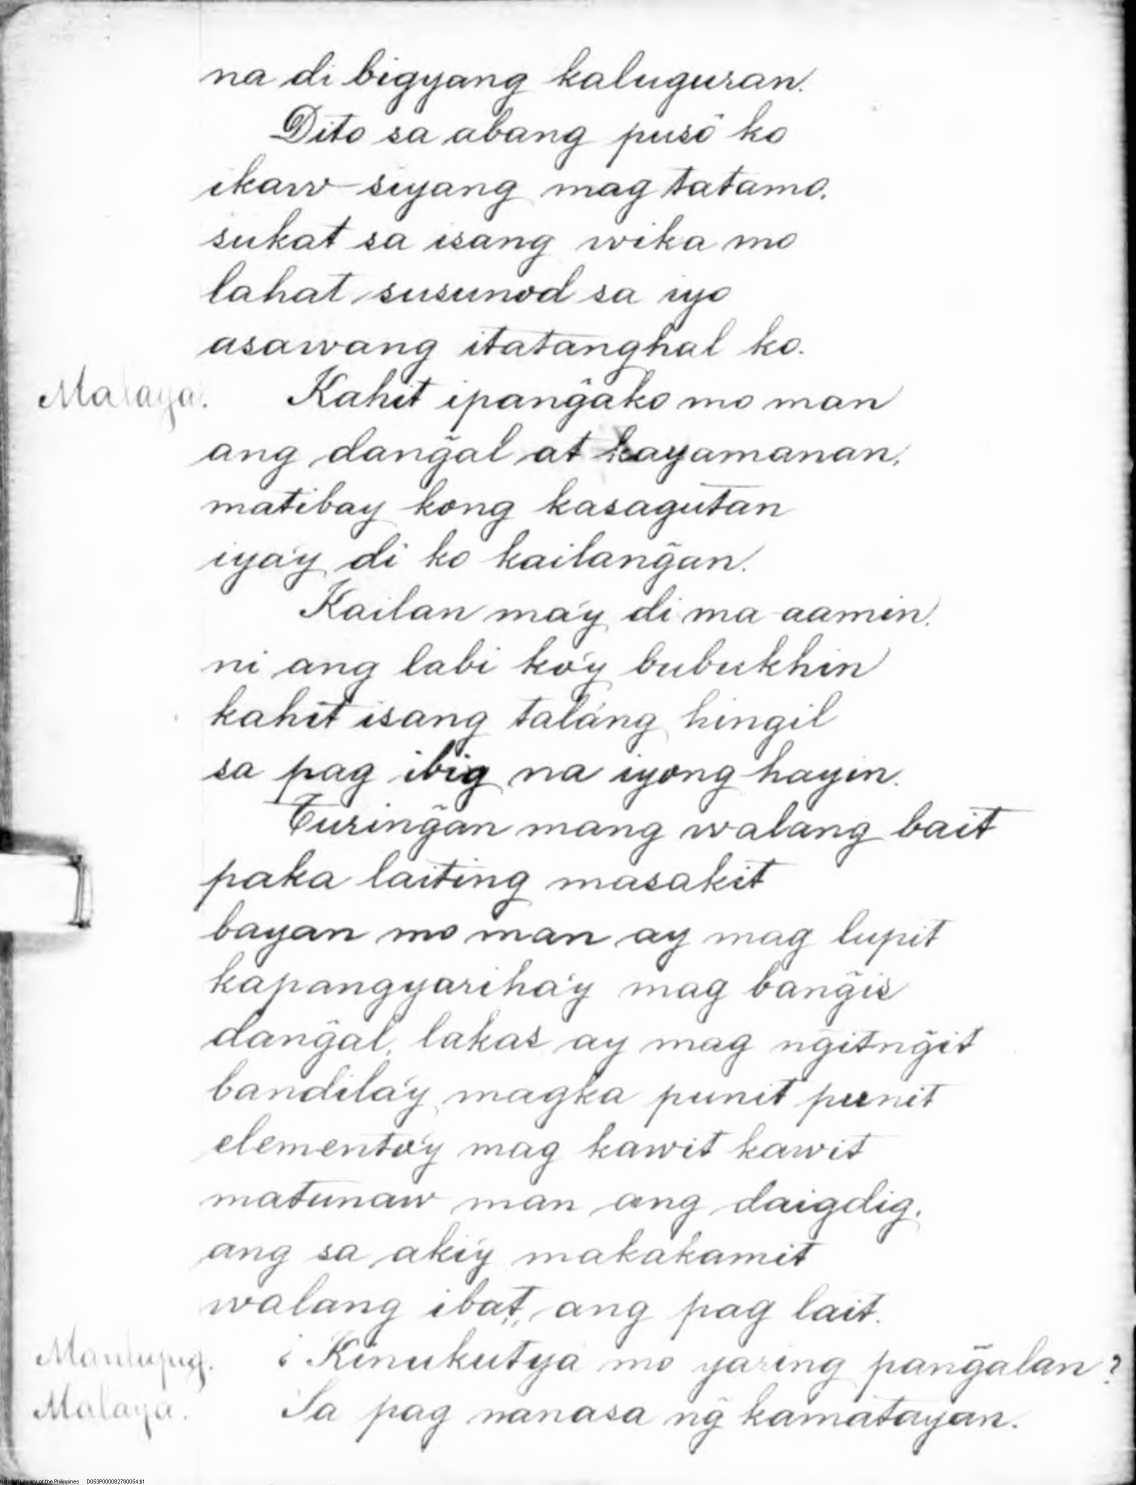 na di bigyang kaluguran.
Dito sa abang pusô ko
ikaw siyang mag tatamo.
sukat sa isang wika mo
lahat susunod sa iyo
asawang itatanghal ko.
Malaya. Kahit ipang̃ako mo man
ang dang̃al at kayamanan,
matibay kong kasagutan
iya'y di ko kailang̃an.
Kailan ma'y di ma-aamin.
ni ang labi ko'y bubukhin
kahit isang talang hingil
sa pag ibig na iyong hayin.
Turing̃an mang walang bait
paka laiting masakit
bayan mo man ay mag lupit
kapangyariha'y mag bang̃is
dang̃al, lakas ay mag ng̃itng̃it
bandila'y magka punit punit
elemento'y mag kawit kawit
matunaw man ang daigdig.
ang sa aki'y makakamit
walang ibat, ang pag lait.
¿Kinukutya mo yaring pang̃alan?
Malaya. Sa pag nanasa ng̃ kamatayan.